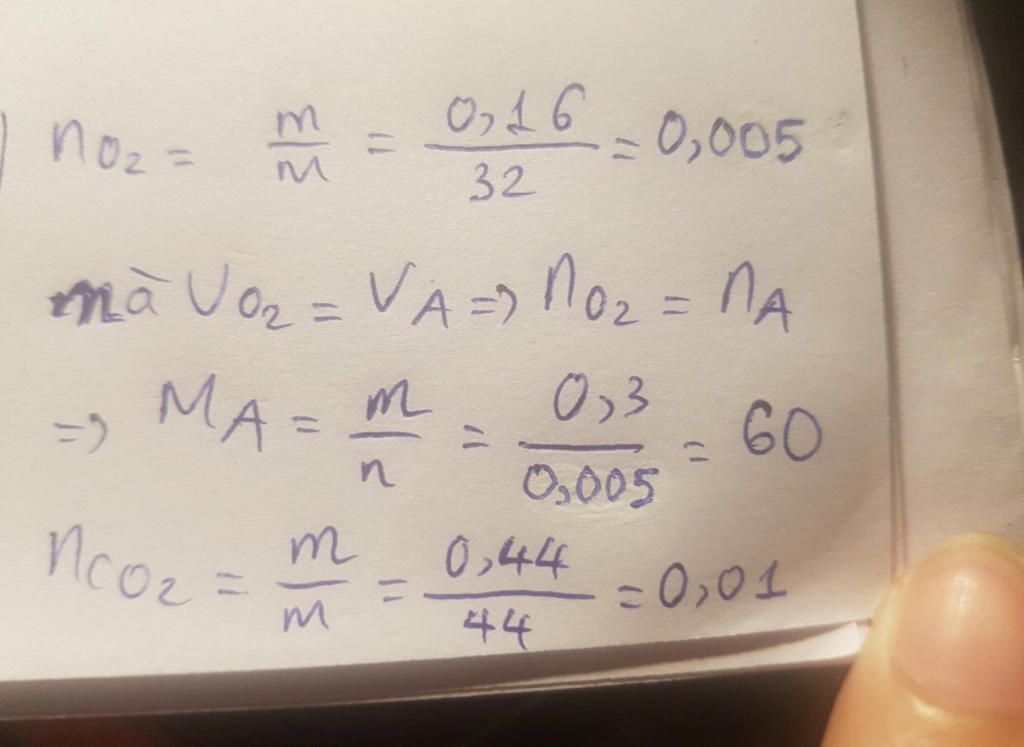 nO₂ = m/m = 0,16/32 = 0,005
mà VO₂ = VA => nO₂ = nA
=> MA = m/n = 0,3/0,005 = 60
nCO₂ = m/m = 0,44/44 = 0,01